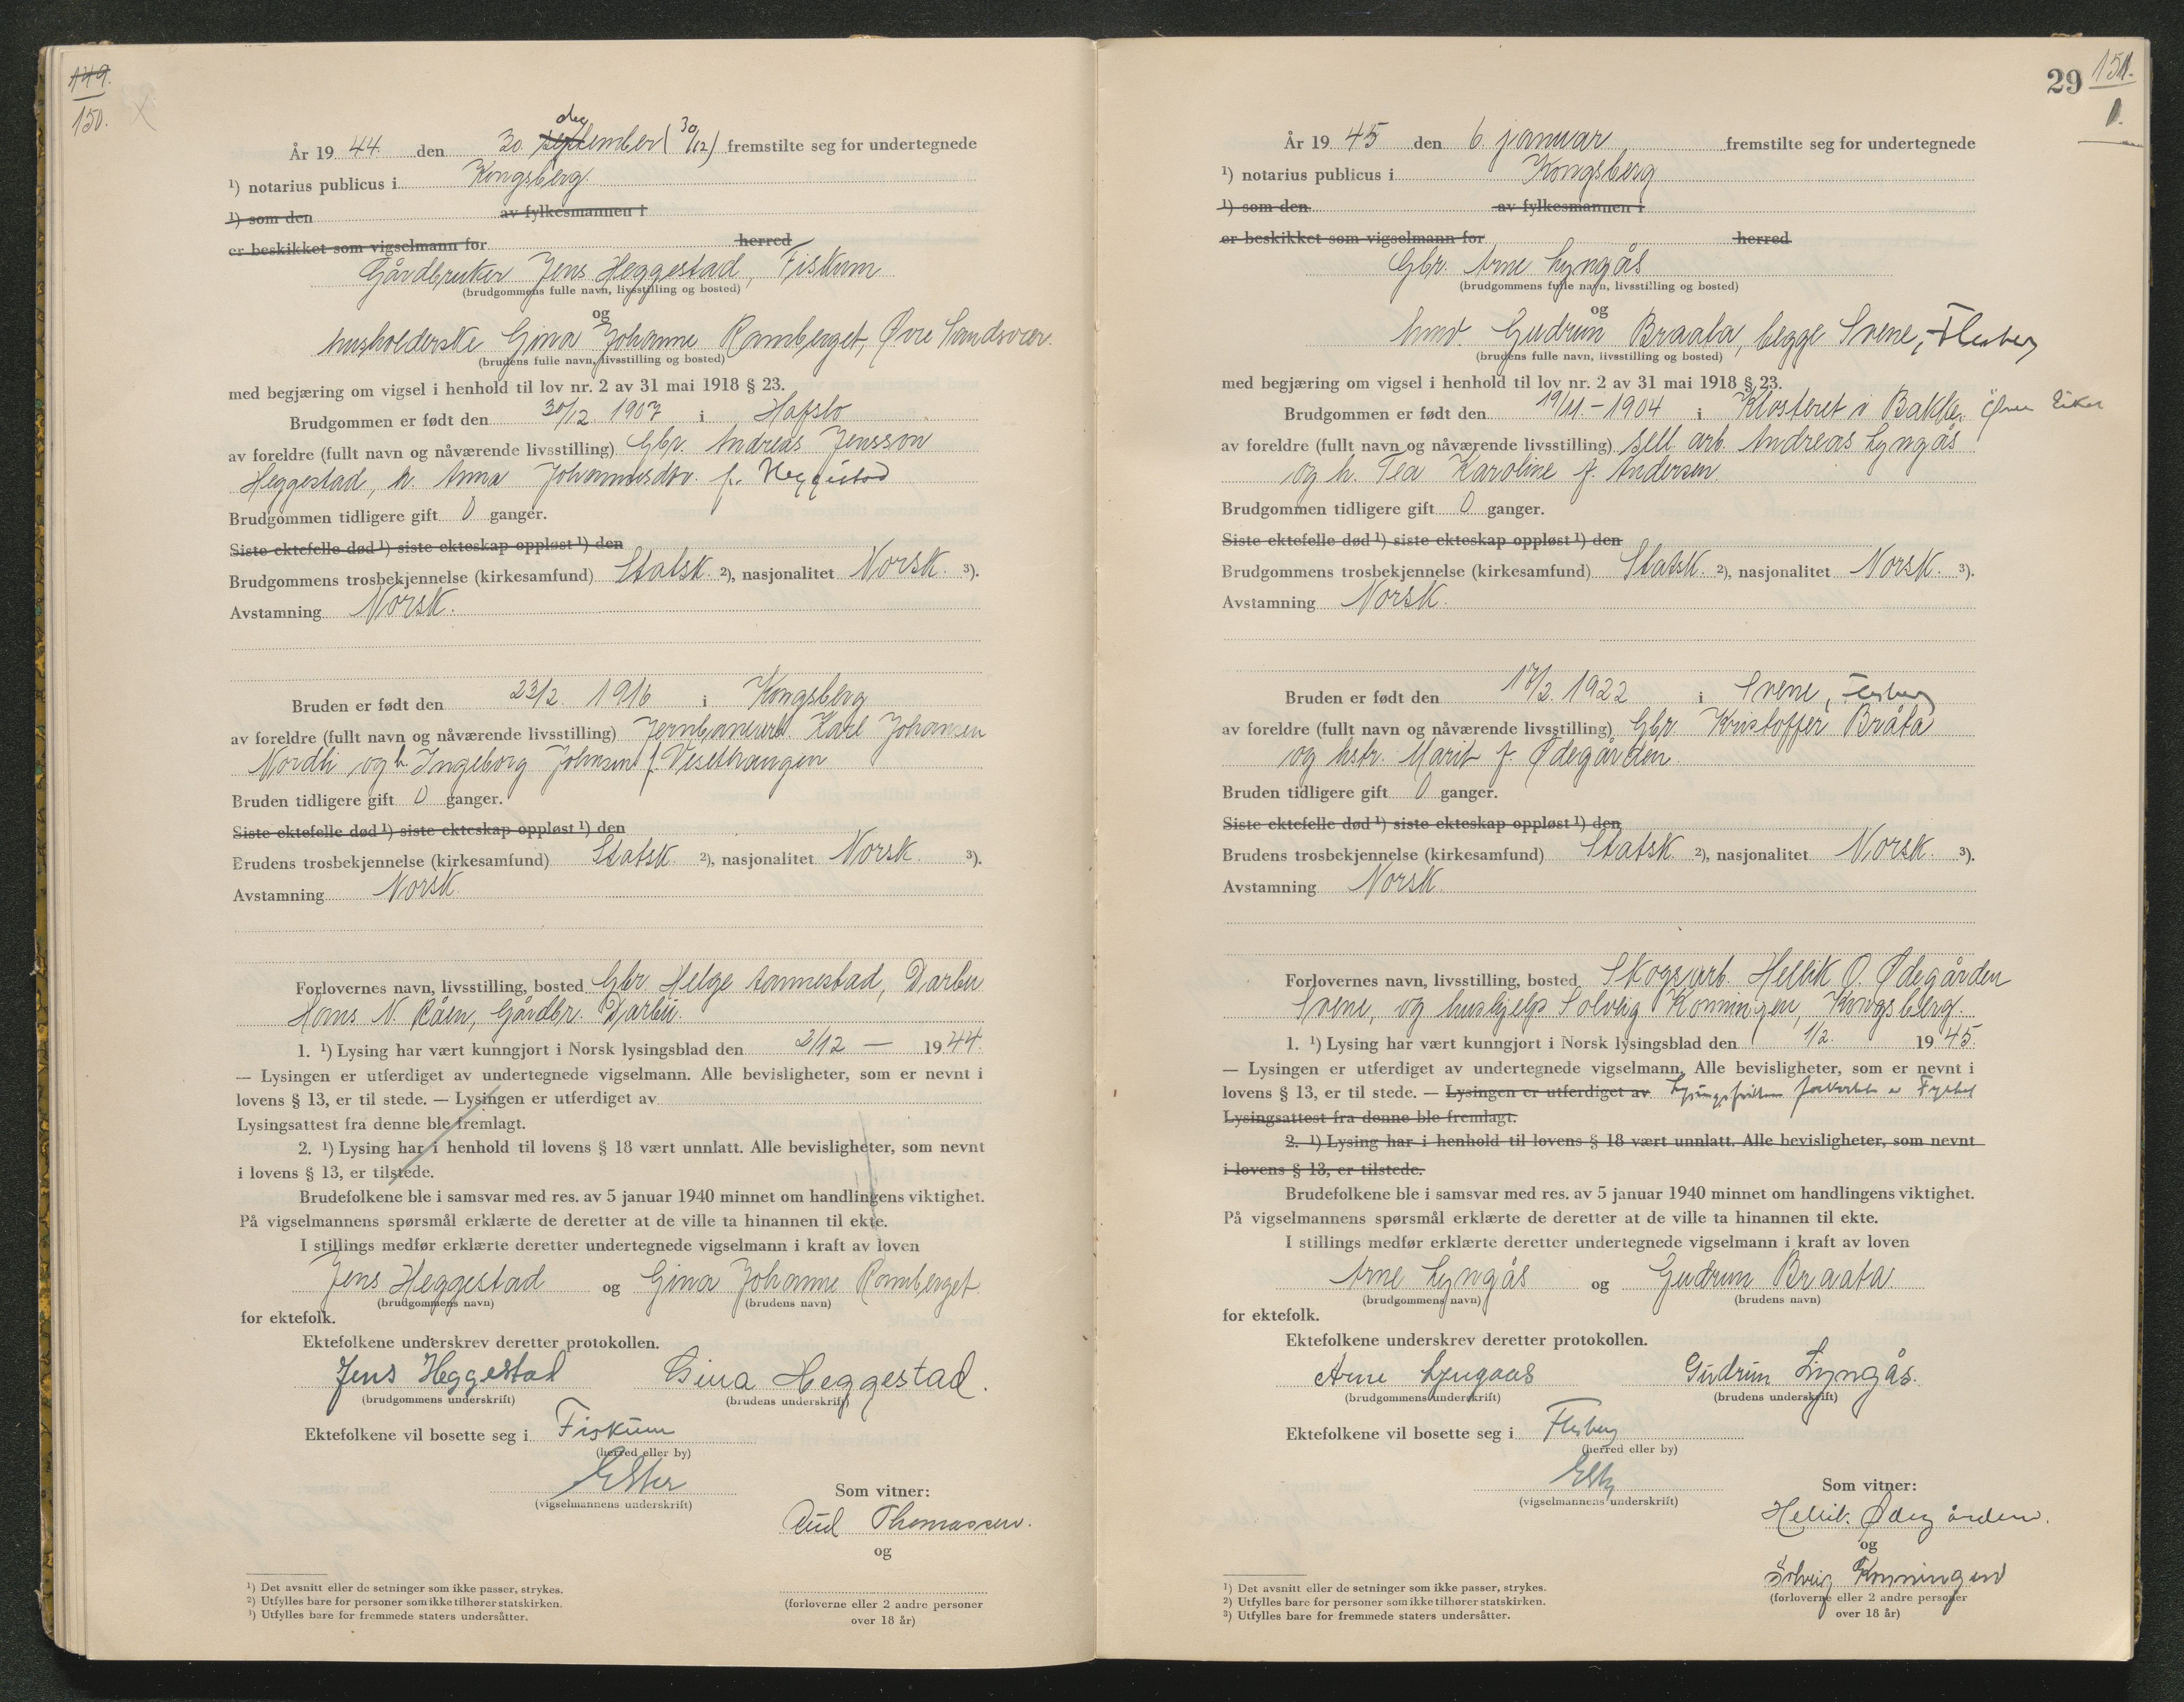 149.
150.
År 19 44. den 30. september (30/12) fremstilte seg for undertegnede
des
¹) notarius publicus i Kongsberg.
¹) som den av fylkesmannen i
er beskikket som vigselmann for herred
Gårdbruker Jens Heggestad, Fiskum
(brudgommens fulle navn, livsstilling og bosted)
og
husholderske Gina Johanne Ramberget, Øvre Sandsvær.
(brudens fulle navn, livsstilling og bosted)
med begjæring om vigsel i henhold til lov nr. 2 av 31 mai 1918 § 23.
Brudgommen er født den 30/12 1907 i Hafslo
av foreldre (fullt navn og nåværende livsstilling) Gbr. Andreas Jensson
Heggestad, h. Anna Johannesdtr. f. Heggestad
Brudgommen tidligere gift 0 ganger.
Siste ektefelle død ¹) siste ekteskap oppløst ¹) den
Brudgommens trosbekjennelse (kirkesamfund) Statsk. ²), nasjonalitet Norsk. ³).
Avstamning Norsk.
Bruden er født den 23/2. 1916 i Kongsberg
av foreldre (fullt navn og nåværende livsstilling) Karl Johansen
Nordli og h. Ingeborg Johnsen f. Vesethaugen
Bruden tidligere gift 0 ganger.
Siste ektefelle død ¹) siste ekteskap oppløst ¹) den
Brudens trosbekjennelse (kirkesamfund) Statsk. ²), nasjonalitet Norsk. ³).
Avstamning Norsk.
Forlovernes navn, livsstilling, bosted Gbr. Helge Aannestad, Darbu
Hans N. Råen, Gårdbr. Darbu.
1. ¹) Lysing har vært kunngjort i Norsk lysingsblad den 2/12 — 19 44.
— Lysingen er utferdiget av undertegnede vigselmann. Alle bevisligheter, som er nevnt i
lovens § 13, er til stede. — Lysingen er utferdiget av
Lysingsattest fra denne ble fremlagt.
2. ¹) Lysing har i henhold til lovens § 18 vært unnlatt. Alle bevisligheter, som nevnt
i lovens § 13, er tilstede.
Brudefolkene ble i samsvar med res. av 5 januar 1940 minnet om handlingens viktighet.
På vigselmannens spørsmål erklærte de deretter at de ville ta hinannen til ekte.
I stillings medfør erklærte deretter undertegnede vigselmann i kraft av loven
Jens Heggestad og Gina Johanne Ramberget
(brudgommens navn) (brudens navn)
for ektefolk.
Ektefolkene underskrev deretter protokollen.
Jens Heggestad Gina Heggestad.
(brudgommens underskrift) (brudens underskrift)
Ektefolkene vil bosette seg i Fiskum
(herred eller by)
(vigselmannens underskrift)
Som vitner:
Aud Thomassen.
og
(forloverne eller 2 andre personer
over 18 år)
¹) Det avsnitt eller de setninger som ikke passer, strykes.
²) Utfylles bare for personer som ikke tilhører statskirken.
³) Utfylles bare for fremmede staters undersåtter.
29 151.
1.
År 19 45 den 6. januar fremstilte seg for undertegnede
¹) notarius publicus i Kongsberg
¹) som den av fylkesmannen i
er beskikket som vigselmann for herred
Gbr. Arne Lyngås
(brudgommens fulle navn, livsstilling og bosted)
og
Gudrun Braata, begge Svene, Flesberg
(brudens fulle navn, livsstilling og bosted)
med begjæring om vigsel i henhold til lov nr. 2 av 31 mai 1918 § 23.
Brudgommen er født den 19/11. - 1904 i Klosteret i Bakke. Øvre Eiker
av foreldre (fullt navn og nåværende livsstilling) sell. arb. Andreas Lyngås
og h. Tea Karoline f. Andersen.
Brudgommen tidligere gift 0 ganger.
Siste ektefelle død ¹) siste ekteskap oppløst ¹) den
Brudgommens trosbekjennelse (kirkesamfund) Statsk. ²), nasjonalitet Norsk. ³).
Avstamning Norsk.
Bruden er født den 17/2. 1922 i Svene, Flesberg
av foreldre (fullt navn og nåværende livsstilling) Gbr. Kristoffer Bråta
og hstr. Marit f. Ødegården.
Bruden tidligere gift 0 ganger.
Siste ektefelle død ¹) siste ekteskap oppløst ¹) den
Brudens trosbekjennelse (kirkesamfund) Statsk. ²), nasjonalitet Norsk. ³).
Avstamning Norsk.
Forlovernes navn, livsstilling, bosted Skogsarb. Hellik O. Ødegården
Svene, og hushjelp Solveig Konningen, Kongsberg.
1. ¹) Lysing har vært kunngjort i Norsk lysingsblad den 1/2. 19 45.
— Lysingen er utferdiget av undertegnede vigselmann. Alle bevisligheter, som er nevnt i
lovens § 13, er til stede. — Lysingen er utferdiget av Lysingsfristen forkortet
Lysingsattest fra denne ble fremlagt.
2. ¹) Lysing har i henhold til lovens § 18 vært unnlatt. Alle bevisligheter, som nevnt
i lovens § 13, er tilstede.
Brudefolkene ble i samsvar med res. av 5 januar 1940 minnet om handlingens viktighet.
På vigselmannens spørsmål erklærte de deretter at de ville ta hinannen til ekte.
I stillings medfør erklærte deretter undertegnede vigselmann i kraft av loven
Arne Lyngås og Gudrun Braata.
(brudgommens navn) (brudens navn)
for ektefolk.
Ektefolkene underskrev deretter protokollen.
Arne Lyngaas Gudrun Lyngås.
(brudgommens underskrift) (brudens underskrift)
Ektefolkene vil bosette seg i Flesberg
(herred eller by)
(vigselmannens underskrift)
Som vitner:
Hellik Ødegården.
og
Solveig Konningen
(forloverne eller 2 andre personer
over 18 år)
¹) Det avsnitt eller de setninger som ikke passer, strykes.
²) Utfylles bare for personer som ikke tilhører statskirken.
³) Utfylles bare for fremmede staters undersåtter.